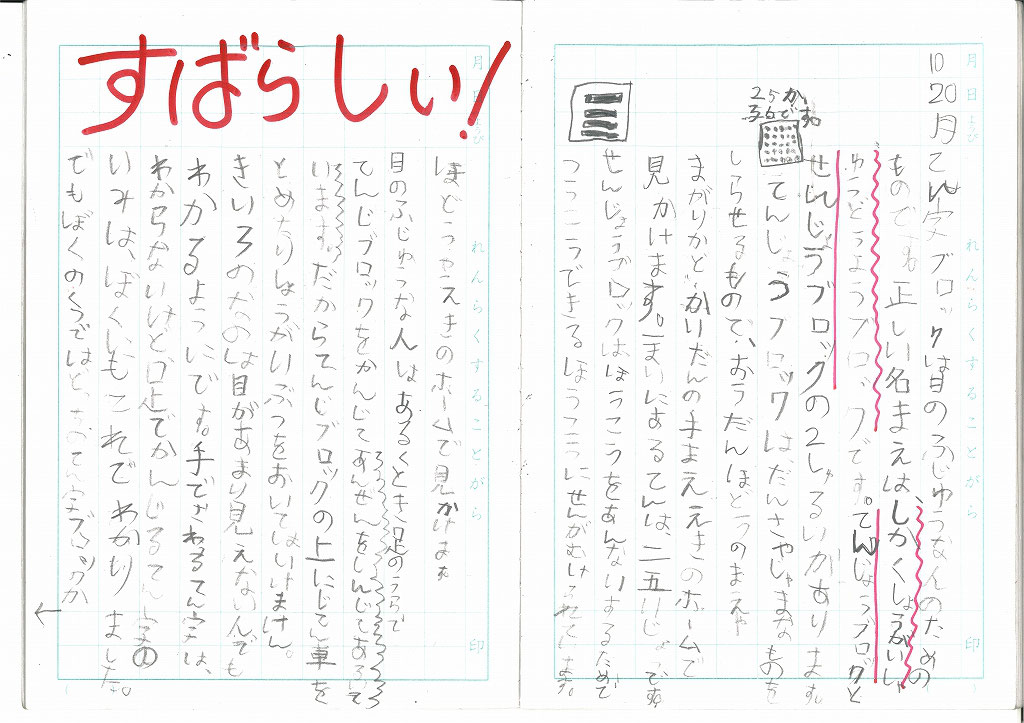 10
20月てん字ブロックは目のふじゆうな人のための
ものです。正しい名まえはしかくしょうがいしゃ
ゆうどうようブロックです。てんじょうブロックと
せんじょうブロックの2しゅるいがあります。
25か
36です。
てんじょうブロックはだんさやじゃまなものを
しらせるもので、おうだんほどうのまえや
まがりかど、かいだんの手まええきのホームで
見かけます。一まいにあるてんは、二五りじょうです
せんじょうブロックはほうこうをあんないするためで
つうこうできるほうこうにせんがむけられています。
ほどうやえきのホームで見かけます
目のふじゆうな人はあるくとき足のうらで
てんじブロックをかんじてあんぜんをしんじてあるいて
います。だからてんじブロックの上にじてん車を
とめたりしょうがいぶつをおいてはいけません。
きいろめなのは目があまり見えない人でも
わかるようにです。手でさわるてん字は、
わからないけど、足でかんじるてん字の
いみは、ぼくにもこれでわかりました。
でもぼくのくつではどっちのてん字ブロックか
すばらしい!
月
日
ようび
れんらくすることがら
印
月
日
ようび
れんらくすることがら
印